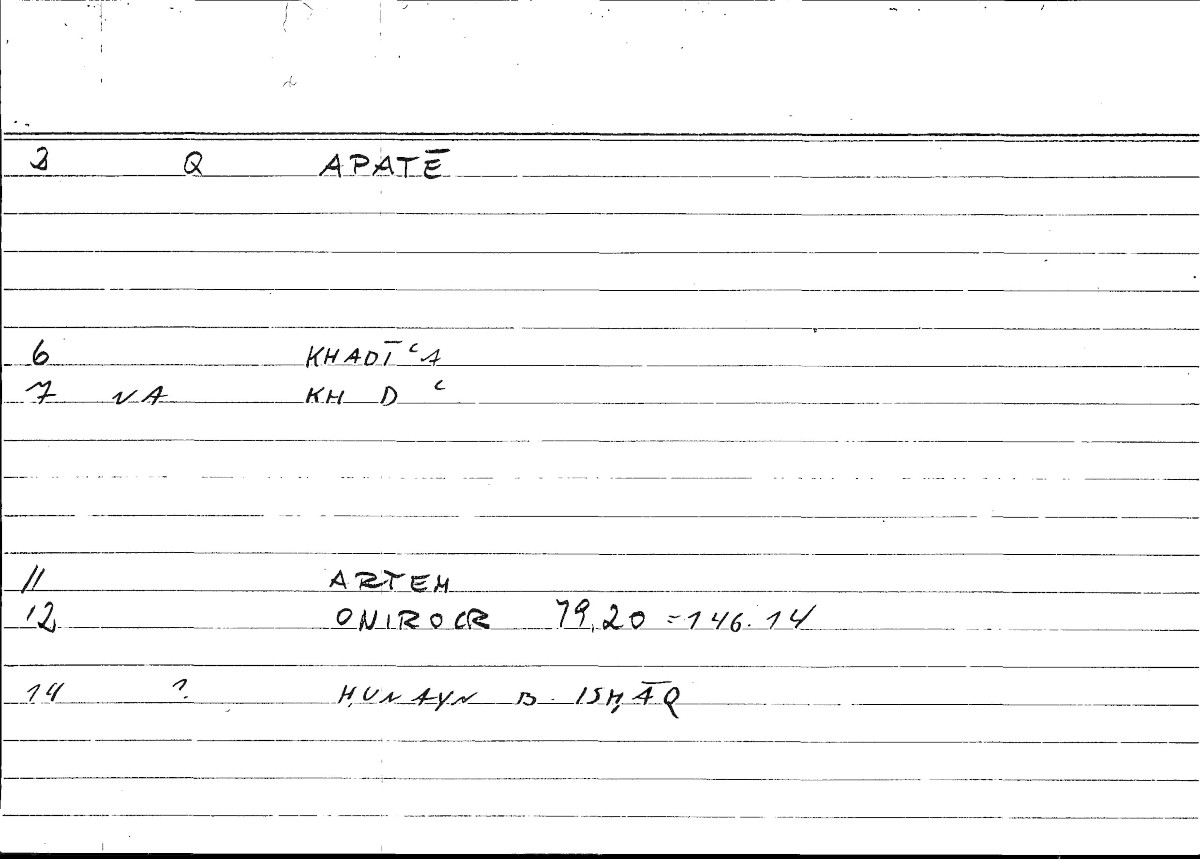 2 Q APATĒ
6 KHADĪʿA
7 NA KH D ʿ
11 ARTEM
12 ONIROCR 79,20 = 146.14
14 ? ḤUNAYN B. ISḤĀQ